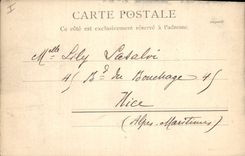 CARTE POSTALE
Ce côté est exclusivement réservé à l'adresse.
Melle Lily Lasalvi
45 Bd du Bouchage 45
Nice
(Alpes-Maritimes)